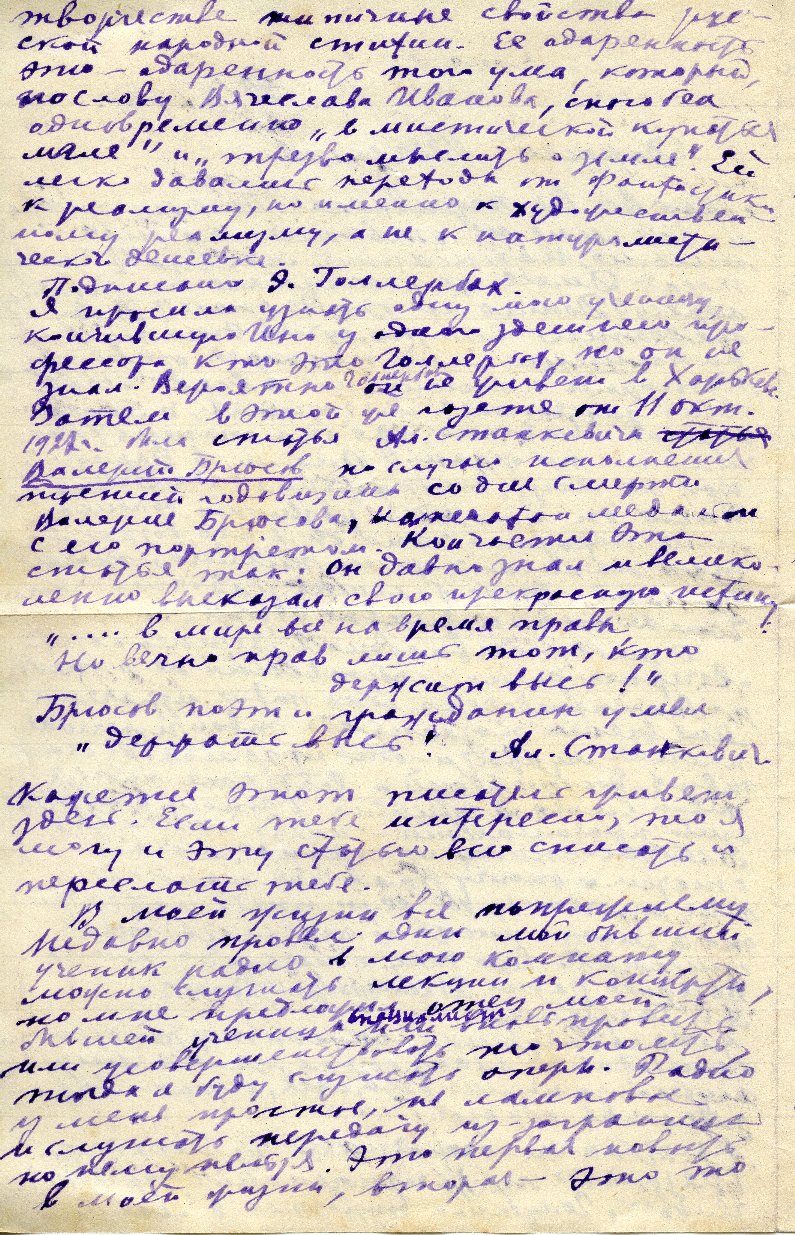 творчестве типичные свойства рус-
ской народной стихии. Ее одаренность
это — одаренность того ума, который,
по слову Вячеслава Иванова, способен
одновременно „в мистической купаться
мгле" и „трезво мыслить о земле". Ей
легко давались переходы от фантастики
к реализму, но именно к художествен-
ному реализму, а не к натуралисти-
ческой дешевке.
Подписано Э. Голлербах.
Я просила узнать одну мою ученицу,
кончившую Ино у одного здешнего про-
фессора кто это Голлербах, но он не
знал. Вероятно он не живет в Харькове.
Затем в этой же газете от 11 окт.
1927 г. была статья Ал. Станкевича статья
Валерий Брюсов по случаю исполнения
годовщины со дня смерти
Валерия Брюсова, медальон
с его портретом. Кончается эта
статья так: Он давно знал и велико-
лепно высказал свою прекрасную истину:
„.... в мире все на время правы
Но вечно прав лишь тот, кто
держит высь!"
Брюсов поэт и гражданин умел
„держать высь!" Ал. Станкевич.
Кажется этот писатель живет
здесь. Если тебе интересно, то я
могу и эту статью всю списать и
переслать тебе.
В моей жизни все попрежнему
Недавно провел один мой бывший
ученик радио в мою комнату
можно слушать лекции и концерты,
но мне предложил отец моей
бывшей ученицы провести
или усовершенствовать
тогда я буду слушать оперы. Радио
у меня простое, не ламповое
и слушать передачу из-заграницы
по нему нельзя. Это первая новость
в моей жизни, вторая — это то